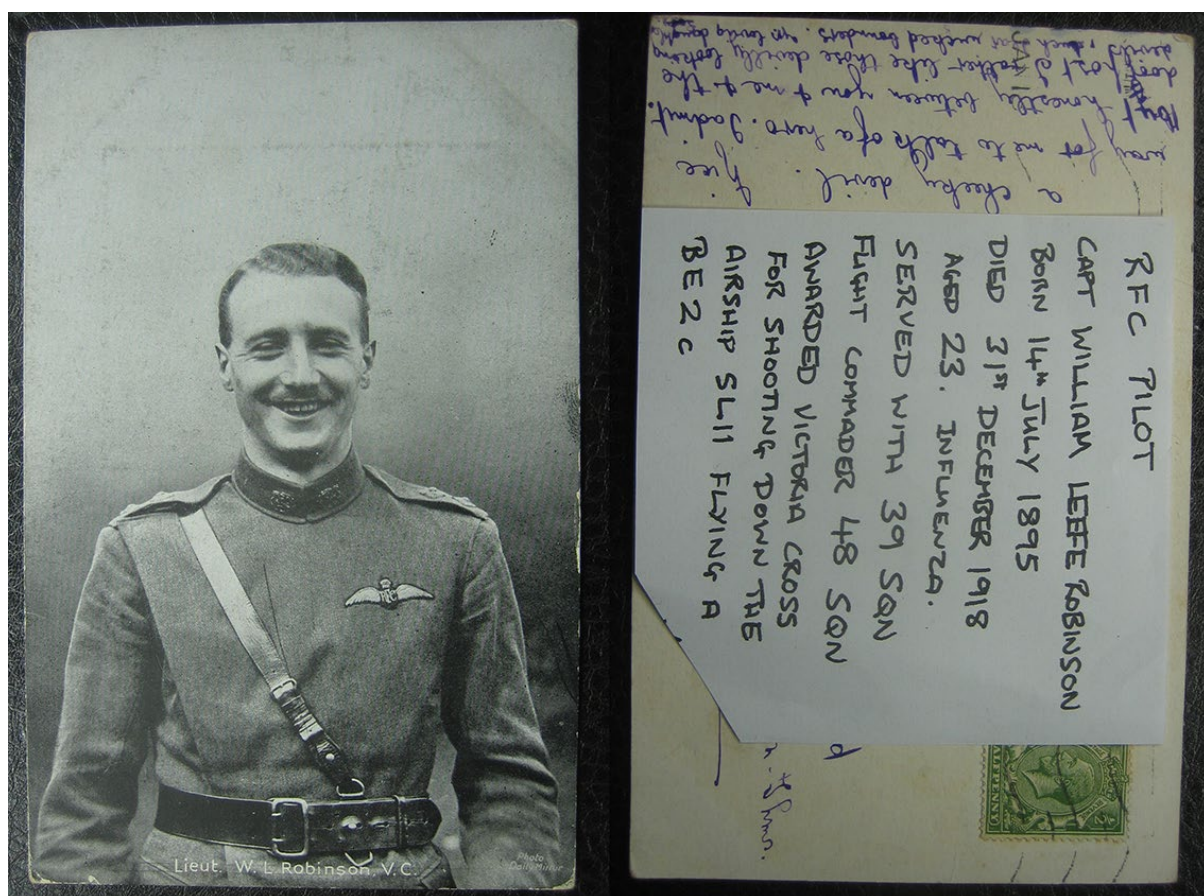 Lieut. W. L. Robinson, V.C.
Photo
Daily Mirror
RFC PILOT
CAPT WILLIAM LEEFE ROBINSON
BORN 14th JULY 1895
DIED 31ST DECEMBER 1918
AGED 23. INFLUENZA.
SERVED WITH 39 SQN
FLIGHT COMMADER 48 SQN
AWARDED VICTORIA CROSS
FOR SHOOTING DOWN THE
AIRSHIP SL11 FLYING A
BE2C
a cheeky devil. Nice
way for me to talk of a hero. I admit.
But honestly between you & me & the
door post I rather like those devilly looking
devils, such wicked bounders.
HALFPENNY